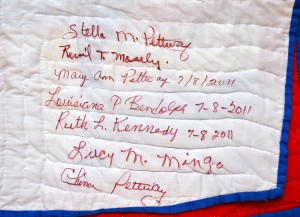 Stella M. Pettway
Revil T. Mosely.
Mary Ann Pettway 7/8/2011
Louisiana P Bendolph 7-8-2011
Ruth L. Kennedy 7-8 2011
Lucy M. Mingo
Pettway